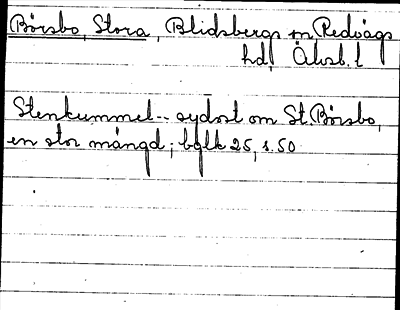 Börsbo, Stora, Blidsbergs sn Redvägs
hd, Älvsb. l
Stenkummel -- sydost om St. Börsbo,
en stor mängd; bglk 25, s. 50